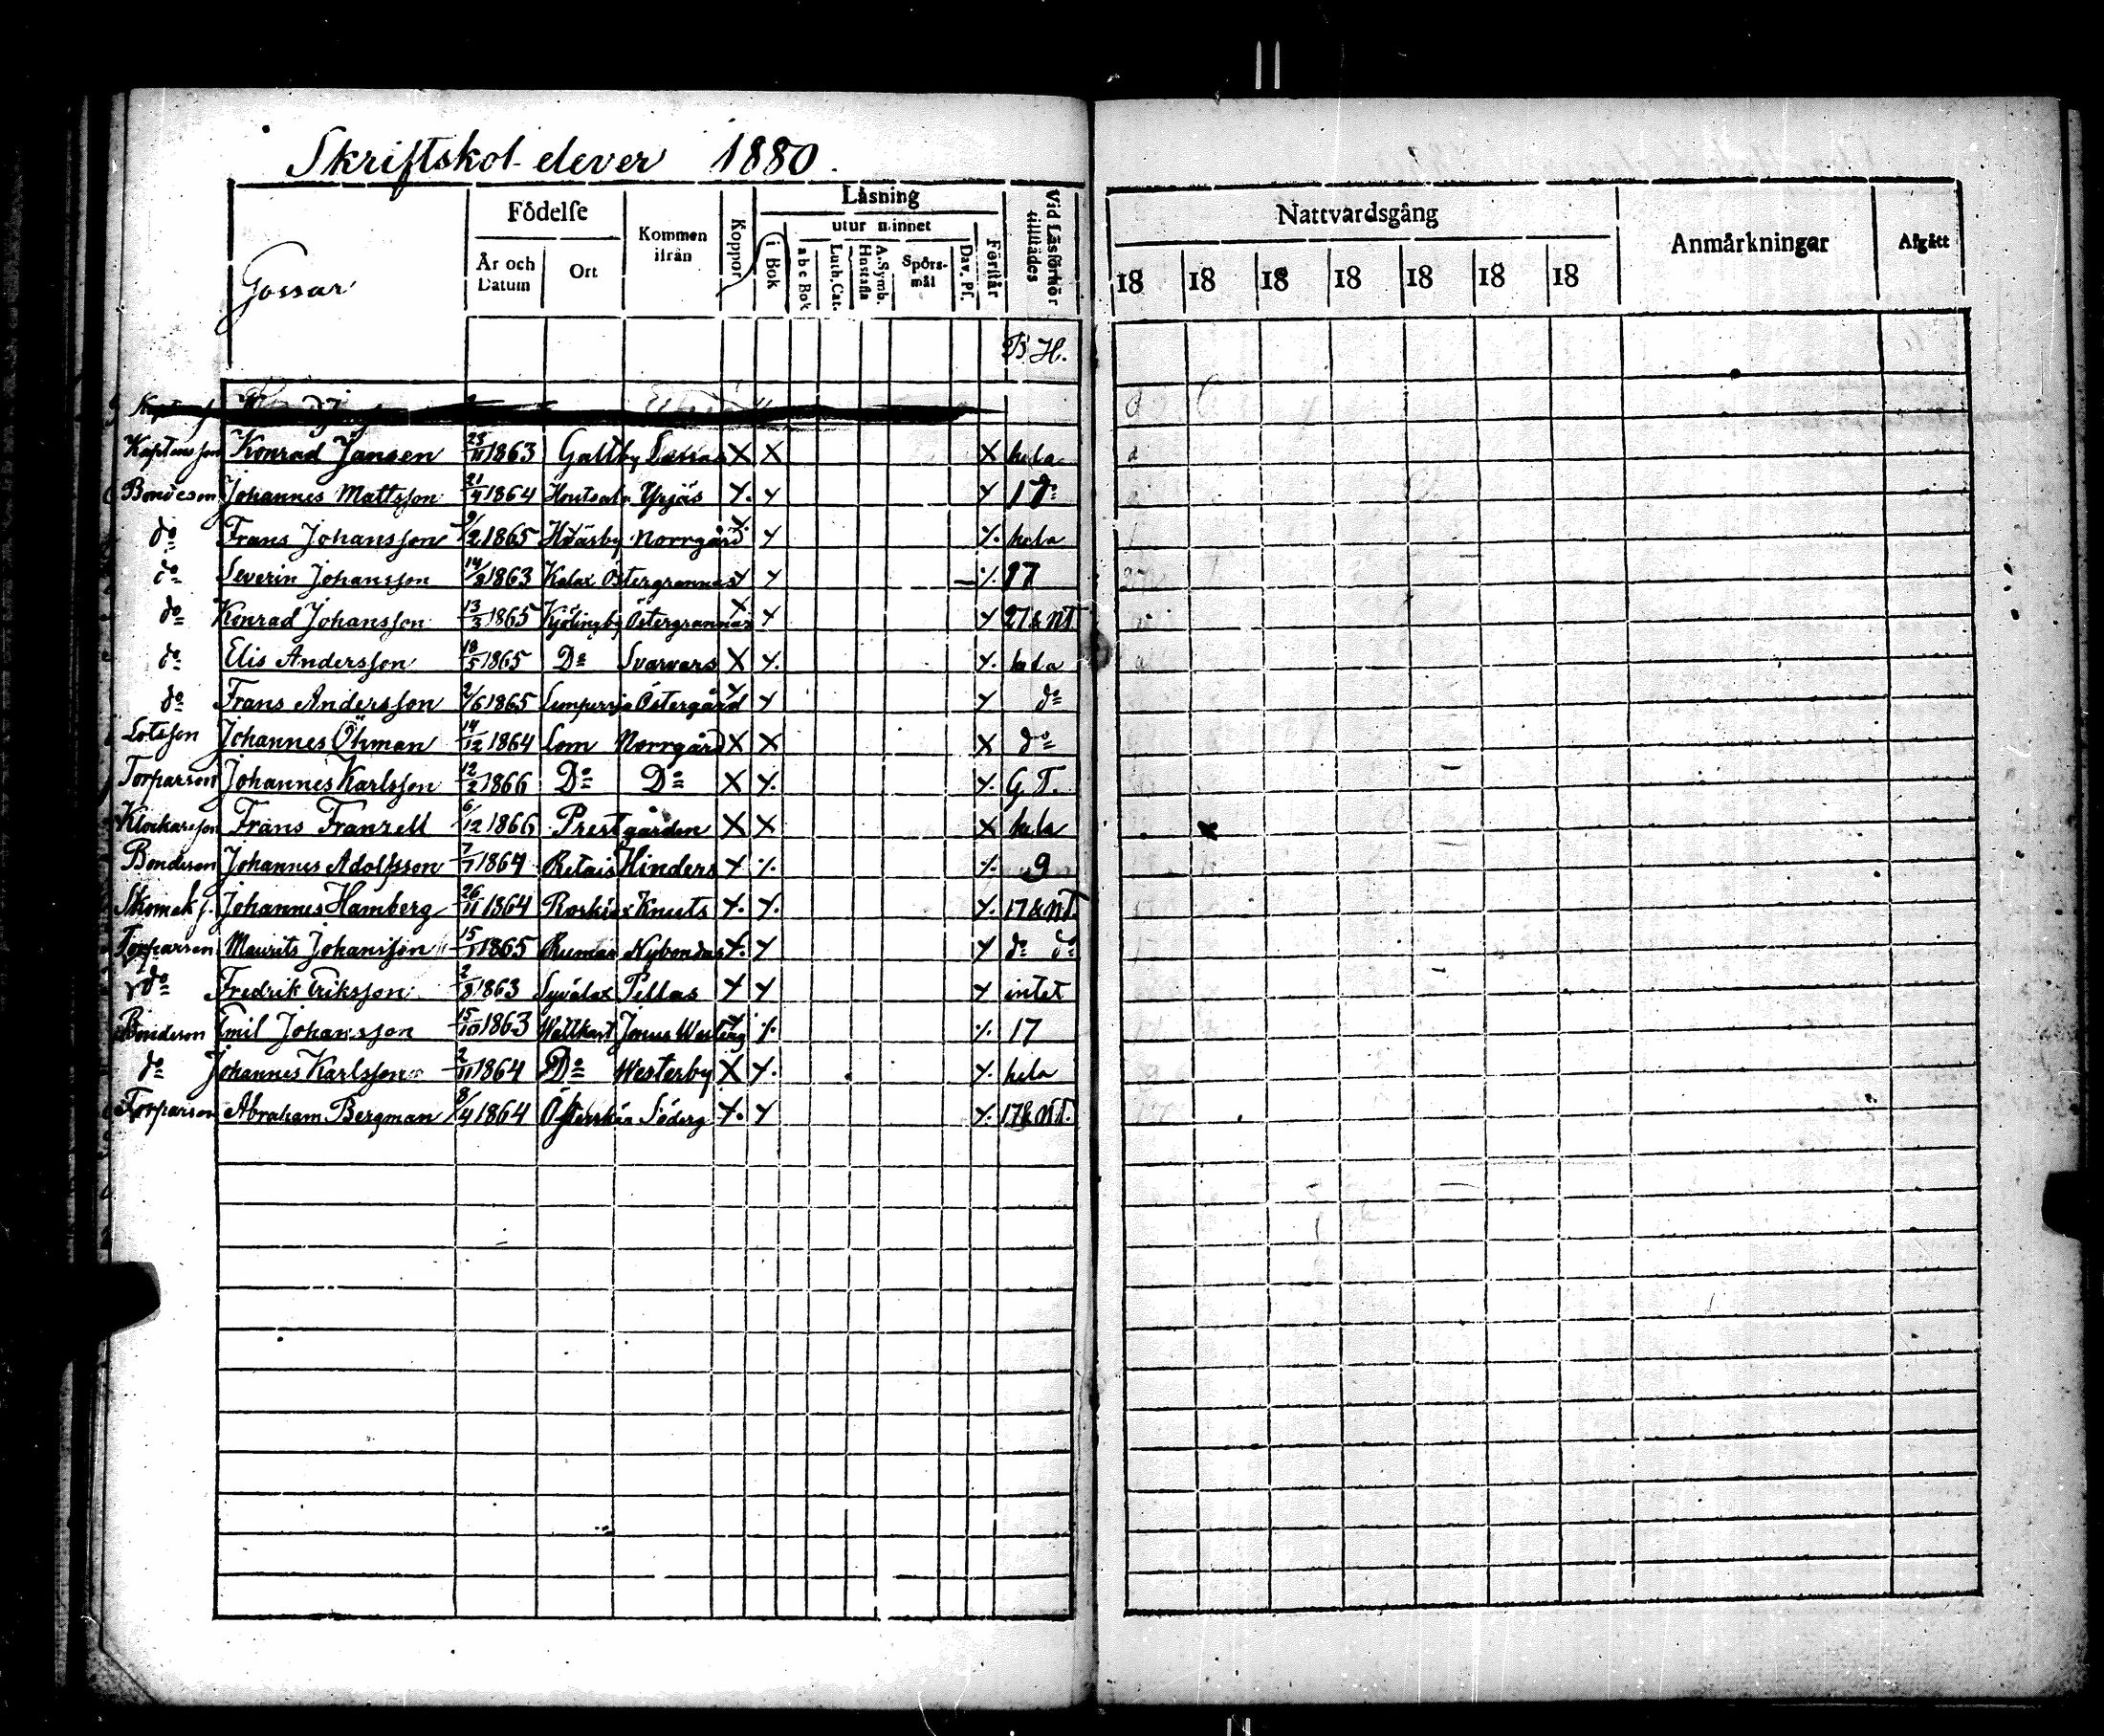 Skriftskol elever 1880.
Gossar
Födelse
År och Datum
Ort
Kommen ifrån
Koppor
Läsning
i Bok
utur minnet
abc Bok
Luth. Cat.
A. Symb. Hustafla
Spörsmål
Dav. Ps.
Förstår
Vid Läsförhör tillstädes
B. H.
Nattvardsgång
18 18 18 18 18 18 18
Anmärkningar
Afgått
Kaptens son Konrad Jansen 23/11 1863 Galtby X X X hela
Bondeson Johannes Mattsson 21/4 1864 Yrjäs X. X X 17 do
do Frans Johansson 9/2 1865 Norrgård X. X X. hela
do Severin Johansson 14/8 1863 Kalax Östergrannas X X — X. 17
do Konrad Johansson 13/3 1865 Östergrannas X X X 27 & NT.
do Elis Andersson 18/5 1865 Do Svarvars X X. X. hela
do Frans Andersson 2/6 1865 Östergård X X X do
Lotsson Johannes Öhman 14/12 1864 Lom Norrgård X X X do
Torparson Johannes Karlsson 12/2 1866 Do Do X X. X. G. T.
Klockarsson Frans Franzell 6/12 1866 Prestgården X X X hela
Bondeson Johannes Adolfsson 7/7 1864 Retais Hinders X X. X. 9
Skomak s. Johannes Hamberg 26/11 1864 Knuts X. X. X. 17 & NT.
Torparson Maurits Johansson 15/11 1865 Rumar Nybondas X. X X do do
do Fredrik Eriksson 2/8 1863 Syvälax Pellas X X X intet
Bondeson Emil Johansson 15/10 1863 Wattkast Jonus X X. X. 17
do Johannes Karlsson 2/11 1864 Do Westerby X X. X. hela
Torparson Abraham Bergman 8/4 1864 Österskär Söderg X. X X. 17 & NT.